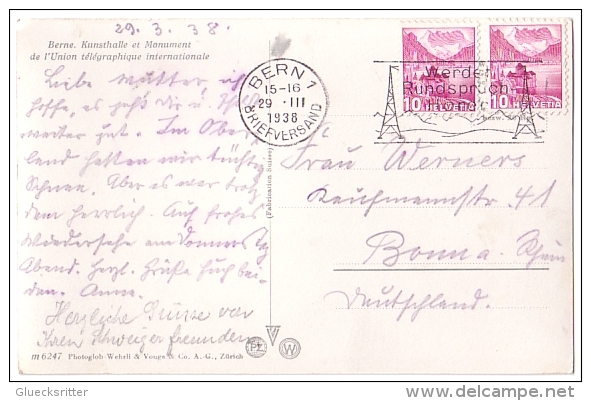 29. 3. 38.
Berne. Kunsthalle et Monument
de l'Union télégraphique internationale
Liebe Mutter, ich
hoffe, es geht dir u.
weiter gut. Im Ober-
land hatten wir tüchtig
Schnee. Aber es war trotz
dem herrlich. Auf frohes
Wiedersehen am Donnerstag
Abend. Herzl. Grüße Euch bei-
den. Anne.
Herzliche Grüsse von
Ihren Schweizerfreunden
m 6247 Photoglob-Wehrli & Vouga & Co. A.-G., Zürich
(Fabrication Suisse)
BERN 1
15-16
29 ·III
1938
BRIEFVERSAND
Werdet
Rundspruch-
10 HELVETIA
10 HELVETIA
Frau Werners
Kaufmannstr. 41
Bonn a. Rhein
Deutschland.
PZ
W
Gluecksritter
delcampe.net